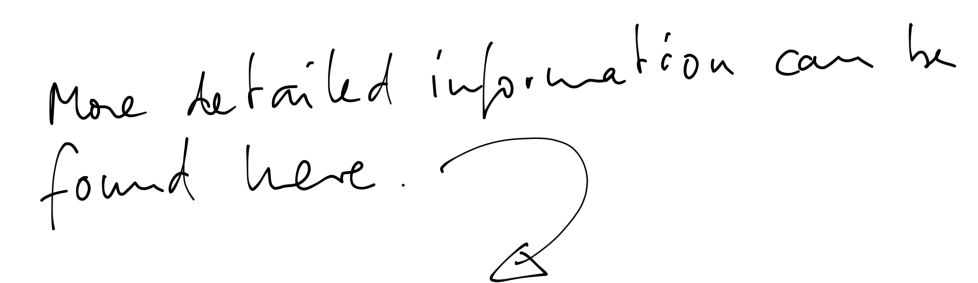 More detailed information can be
found here.